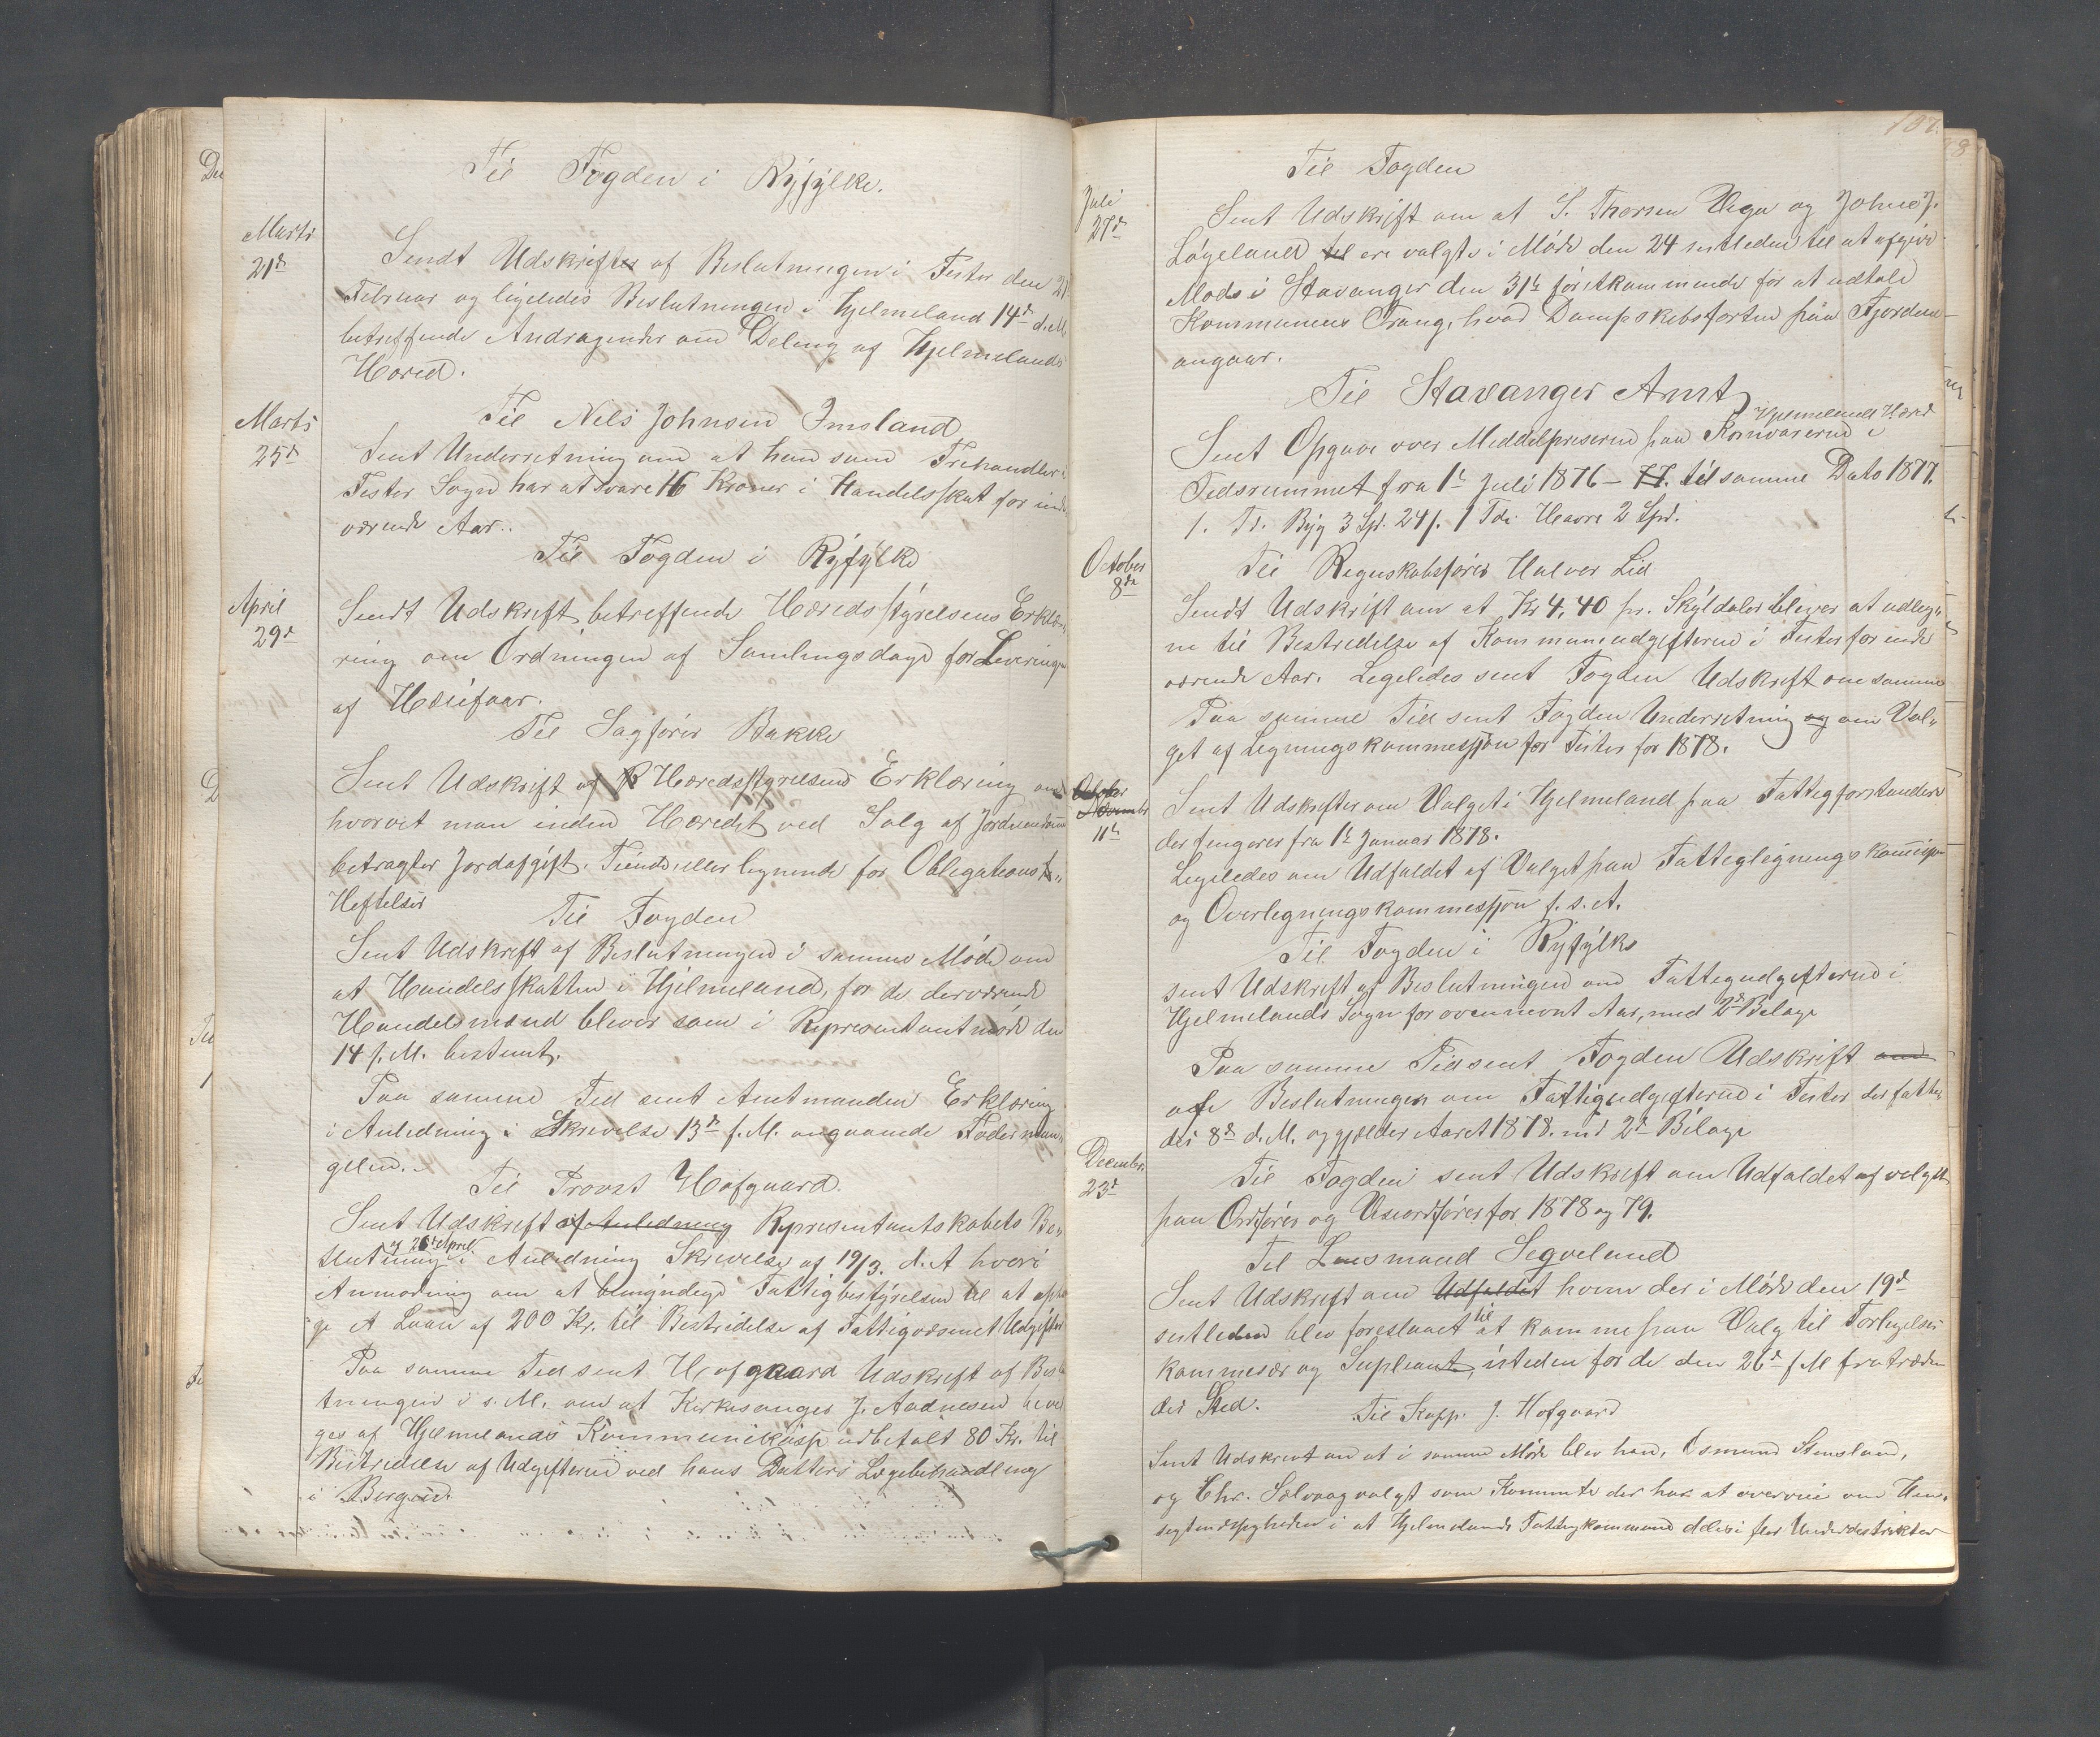 Til Fogden i Ryfylke.
Marts
21de
Sendt Udskrifter af Beslutningen i Fister den 21
Februar og ligeledes Beslutningen i Hjelmeland 14de d.M.
betreffende Andragender om Deling af Hjelmelands
Hered.
Marts
25de
Til Nels Johnsen Imsland
Sent Underretning om at han som Trehandler i
Fister Sogn har at svare 16 Kroner i Handelsskat for inde
værende Aar.
Til Fogden i Ryfylke
April
29de
Sendt Udskrift betreffende Heredsstyrelsens Erklæ-
ring om Ordningen af Samlingsdage for Leveringen
af
Til Sagfører Bakke
Sent Udskrift af Heredsstyrelsens Erklæring om
hvorvit man inden Heredet ved Salg af Jordeiendomme
betragter Jordafgift, Tiende eller lignende for Obligations
Heftelser
Til Fogden
Sent Udskrift af Beslutningen i samme Møde om
at Handelsskatten i Hjelmeland, for de derværende
Handelsmænd blever som i Representantmøde den
14 f.M. bestemt.
Paa samme Tid sent Amtmanden Erklæring
i Anledning i Skrivelse 13de f.M. angaaende Foderman-
gelen.
Til Provst Hofgaard.
Sent Udskrift af Anledning Representantskabets Be-
af 26de April
slutning i Anledning Skrivelse af 19/3. d.A hvori
Anmodning om at bemyndige Fattigbestyrelsen til at opta
ge et Laan af 200 Kr. til Bestridelse af Fattigvæsenet Udgifter
Paa samme Tid sent Hofgaard Udskrift af Beslu
tningen i s.M. om at Kirkesanger J. Aadnesen bevil
ges af Hjelmelands Kommunekasse udbetalt 80 Kr. til
Bestridelse af Udgifterne ved hans Datters Lægebehandling
i Bergen.
137.
Til Fogden
Juli
27de
Sent Udskrift om at S. Thorsen Vega og Johne J.
Løgeland til ere valgte i Møde den 24 sistleden til at afgive
Møde i Stavanger den 31te førstkommende for at udtale
Kommunens Trang, hvad Dampskibsfarten paa Fjordene
angaar.
Til Stavanger Amt
Hjelmelands Hered
Sent Opgave over Middelpriserne paa Kornvarerne i
Tidsrummet fra 1te Juli 1876 – 77. til samme Dato 1877.
1. Td. Byg 3 Spd. 24 s. 1 Tde Havre 2 Spd.
October
8de
Til Regnskabsfører Halvor Lid
Sendt Udskrift om at Kr 4,40 pr. Skyldaler bliver at udleg-
ne til Bestridelse af Kommuneudgifterne i Fister for inde
værende Aar. Legeledes sent Fogden Udskrift om samme
Paa samme Tid sent Fogden Underretning og om Val-
get af Legningskommesjon for Fister for 1878.
October
November
11te
Sent Udskrifter om Valget i Hjelmeland paa Fattigforstandere
der fungerer fra 1te Januar 1878.
Legeledes om Udfaldet af Valget paa Fatteglegningskomission
og Overlegningskommesjon f.s.A.
Til Fogden i Ryfylke
sent Udskrift af Beslutningen om Fattegudgifterne i
Hjelmelands Sogn for ovennevnt Aar, med 2de Belage
Paa samme Tid sent Fogden Udskrift om
afe Beslutningen om Fattigudgifterne i Fister der fatte-
des 8de d.M. og gjælder Aaret 1878. md 2de Bilage
Decembr.
23de
Til Fogden sent Udskrift om Udfaldet af valget
paa Ordfører og Viseordfører for 1878 og 79.
Til Lensmand Segveland
Sent Udskrift om Udfaldet hvem der i Møde den 19de
sistleden blev foreslaaet til at komme paa Valg til Forligelses
kommesær og Supleant, isteden for de den 26de f M fratræden
des Sted.
Til Kapp. J. Hofgaard
Sent Udskrivt om at i samme Møde blev han, Osmund Stensland,
og Chr. Solvaag valgt som Kommite der har at overveie om Hen-
sigtmæssigheden i at Hjelmelands Fattigkommune deles i flere Underdistrikter